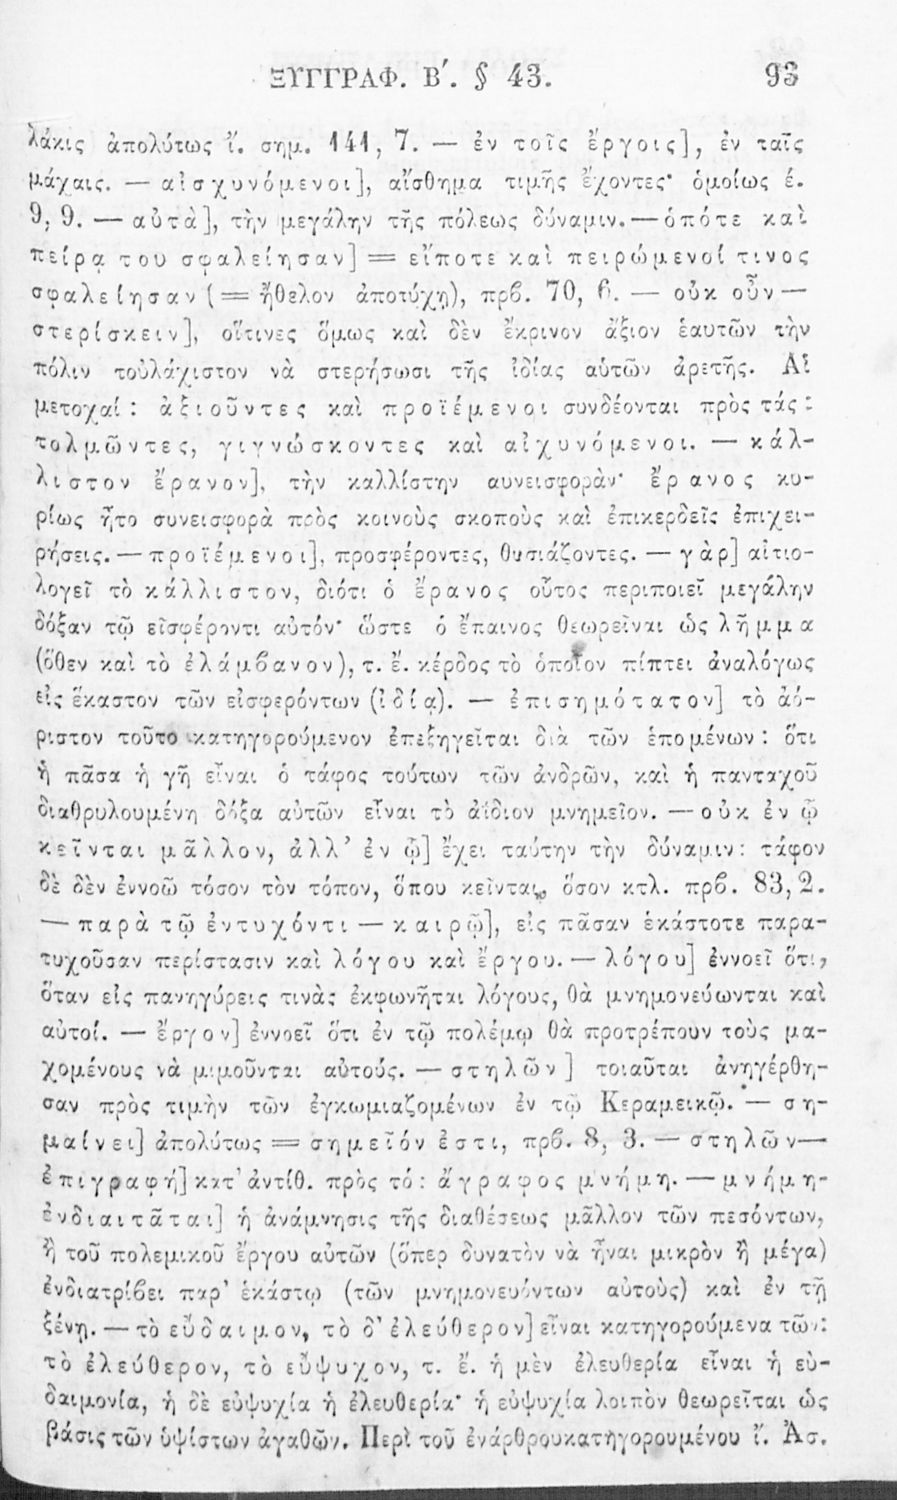 ΞΥΓΓΡΑΦ. Β΄. § 43. 93
λάκις ἀπολύτως ἴ. σημ. 141, 7. — ἐν τοῖς ἔργοις], ἐν ταῖς
μάχαις. — αἰσχυνόμενοι], αἴσθημα τιμῆς ἔχοντες· ὁμοίως έ.
9, 9. — αὐτὰ], τὴν μεγάλην τῆς πόλεως δύναμιν. — ὁπότε καὶ
πείρᾳ του σφαλείησαν] = εἴποτε καὶ πειρώμενοί τινος
σφαλείησαν (= ἤθελον ἀποτύχῃ), πρβ. 70, 6. — οὐκ οὖν —
στερίσκειν], οἵτινες ὅμως καὶ δὲν ἔκρινον ἄξιον ἑαυτῶν τὴν
πόλιν τοὐλάχιστον νὰ στερήσωσι τῆς ἰδίας αὑτῶν ἀρετῆς. Αἱ
μετοχαί: ἀξιοῦντες καὶ προϊέμενοι συνδέονται πρὸς τάς:
τολμῶντες, γιγνώσκοντες καὶ αἰχυνόμενοι. — κάλ-
λιστον ἔρανον], τὴν καλλίστην αυνεισφοράν· ἔρανος κυ-
ρίως ἦτο συνεισφορὰ πρὸς κοινοὺς σκοποὺς καὶ ἐπικερδεῖς ἐπιχει-
ρήσεις. — προϊέμενοι], προσφέροντες, θυσιάζοντες. — γὰρ] αἰτιο-
λογεῖ τὸ κάλλιστον, διότι ὁ ἔρανος οὗτος περιποιεῖ μεγάλην
δόξαν τῷ εἰσφέροντι αὐτόν· ὥστε ὁ ἔπαινος θεωρεῖναι ὡς λῆμμα
(ὅθεν καὶ τὸ ἐλάμβανον), τ. ἔ. κέρδος τὸ ὁποῖον πίπτει ἀναλόγως
εἰς ἕκαστον τῶν εἰσφερόντων (ἰδίᾳ). — ἐπισημότατον] τὸ ἀό-
ριστον τοῦτο κατηγορούμενον ἐπεξηγεῖται διὰ τῶν ἑπομένων: ὅτι
ἡ πᾶσα ἡ γῆ εἶναι ὁ τάφος τούτων τῶν ἀνδρῶν, καὶ ἡ πανταχοῦ
διαθρυλουμένη δόξα αὐτῶν εἶναι τὸ ἀΐδιον μνημεῖον. — οὐκ ἐν ᾧ
κεῖνται μᾶλλον, ἀλλ' ἐν ᾧ] ἔχει ταύτην τὴν δύναμιν: τάφον
δὲ δὲν ἐννοῶ τόσον τὸν τόπον, ὅπου κεῖνται, ὅσον κτλ. πρβ. 83, 2.
— παρὰ τῷ ἐντυχόντι — καιρῷ], εἰς πᾶσαν ἑκάστοτε παρα-
τυχοῦσαν περίστασιν καὶ λόγου καὶ ἔργου. — λόγου] ἐννοεῖ ὅτι,
ὅταν εἰς πανηγύρεις τινὰς ἐκφωνῆται λόγους, θὰ μνημονεύωνται καὶ
αὐτοί. — ἔργον] ἐννοεῖ ὅτι ἐν τῷ πολέμῳ θὰ προτρέπουν τοὺς μα-
χομένους νὰ μιμοῦνται αὐτούς. — στηλῶν] τοιαῦται ἀνηγέρθη-
σαν πρὸς τιμὴν τῶν ἐγκωμιαζομένων ἐν τῷ Κεραμεικῷ. — ση-
μαίνει] ἀπολύτως = σημεῖόν ἐστι, πρβ. 8, 3. — στηλῶν —
ἐπιγραφή] κατ' ἀντίθ. πρὸς τό: ἄγραφος μνήμη. — μνήμη-
ἐνδιαιτᾶται] ἡ ἀνάμνησις τῆς διαθέσεως μᾶλλον τῶν πεσόντων,
ἢ τοῦ πολεμικοῦ ἔργου αὐτῶν (ὅπερ δυνατὸν νὰ ἦναι μικρὸν ἢ μέγα)
ἐνδιατρίβει παρ' ἑκάστῳ (τῶν μνημονευόντων αὐτοὺς) καὶ ἐν τῇ
ξένῃ. — τὸ εὔδαιμον, τὸ δ' ἐλεύθερον] εἶναι κατηγορούμενα τῶν:
τὸ ἐλεύθερον, τὸ εὔψυχον, τ. ἔ. ἡ μὲν ἐλευθερία εἶναι ἡ εὐ-
δαιμονία, ἡ δὲ εὐψυχία ἡ ἐλευθερία· ἡ εὐψυχία λοιπὸν θεωρεῖται ὡς
βάσις τῶν ὑψίστων ἀγαθῶν. Περὶ τοῦ ἐνάρθρου κατηγορουμένου ἴ. Ἀσ.